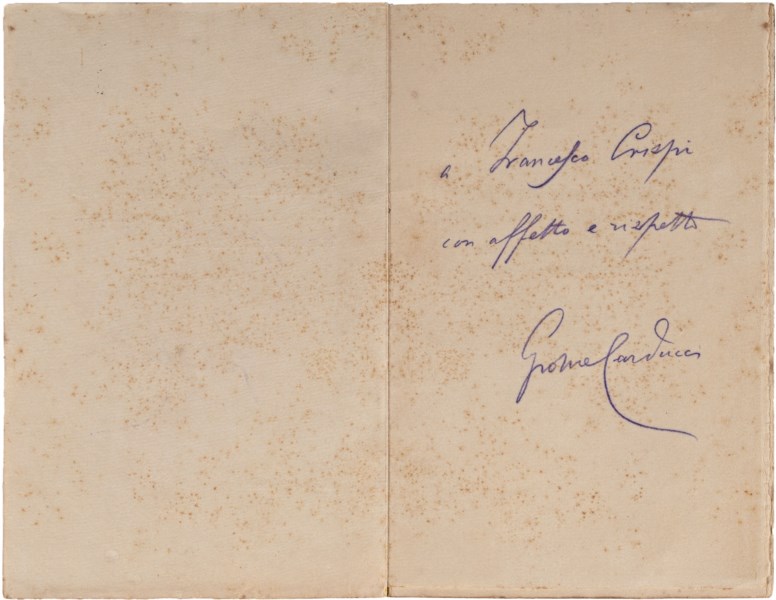 a Francesco Crispi
con affetto e rispetto
Giosue Carducci